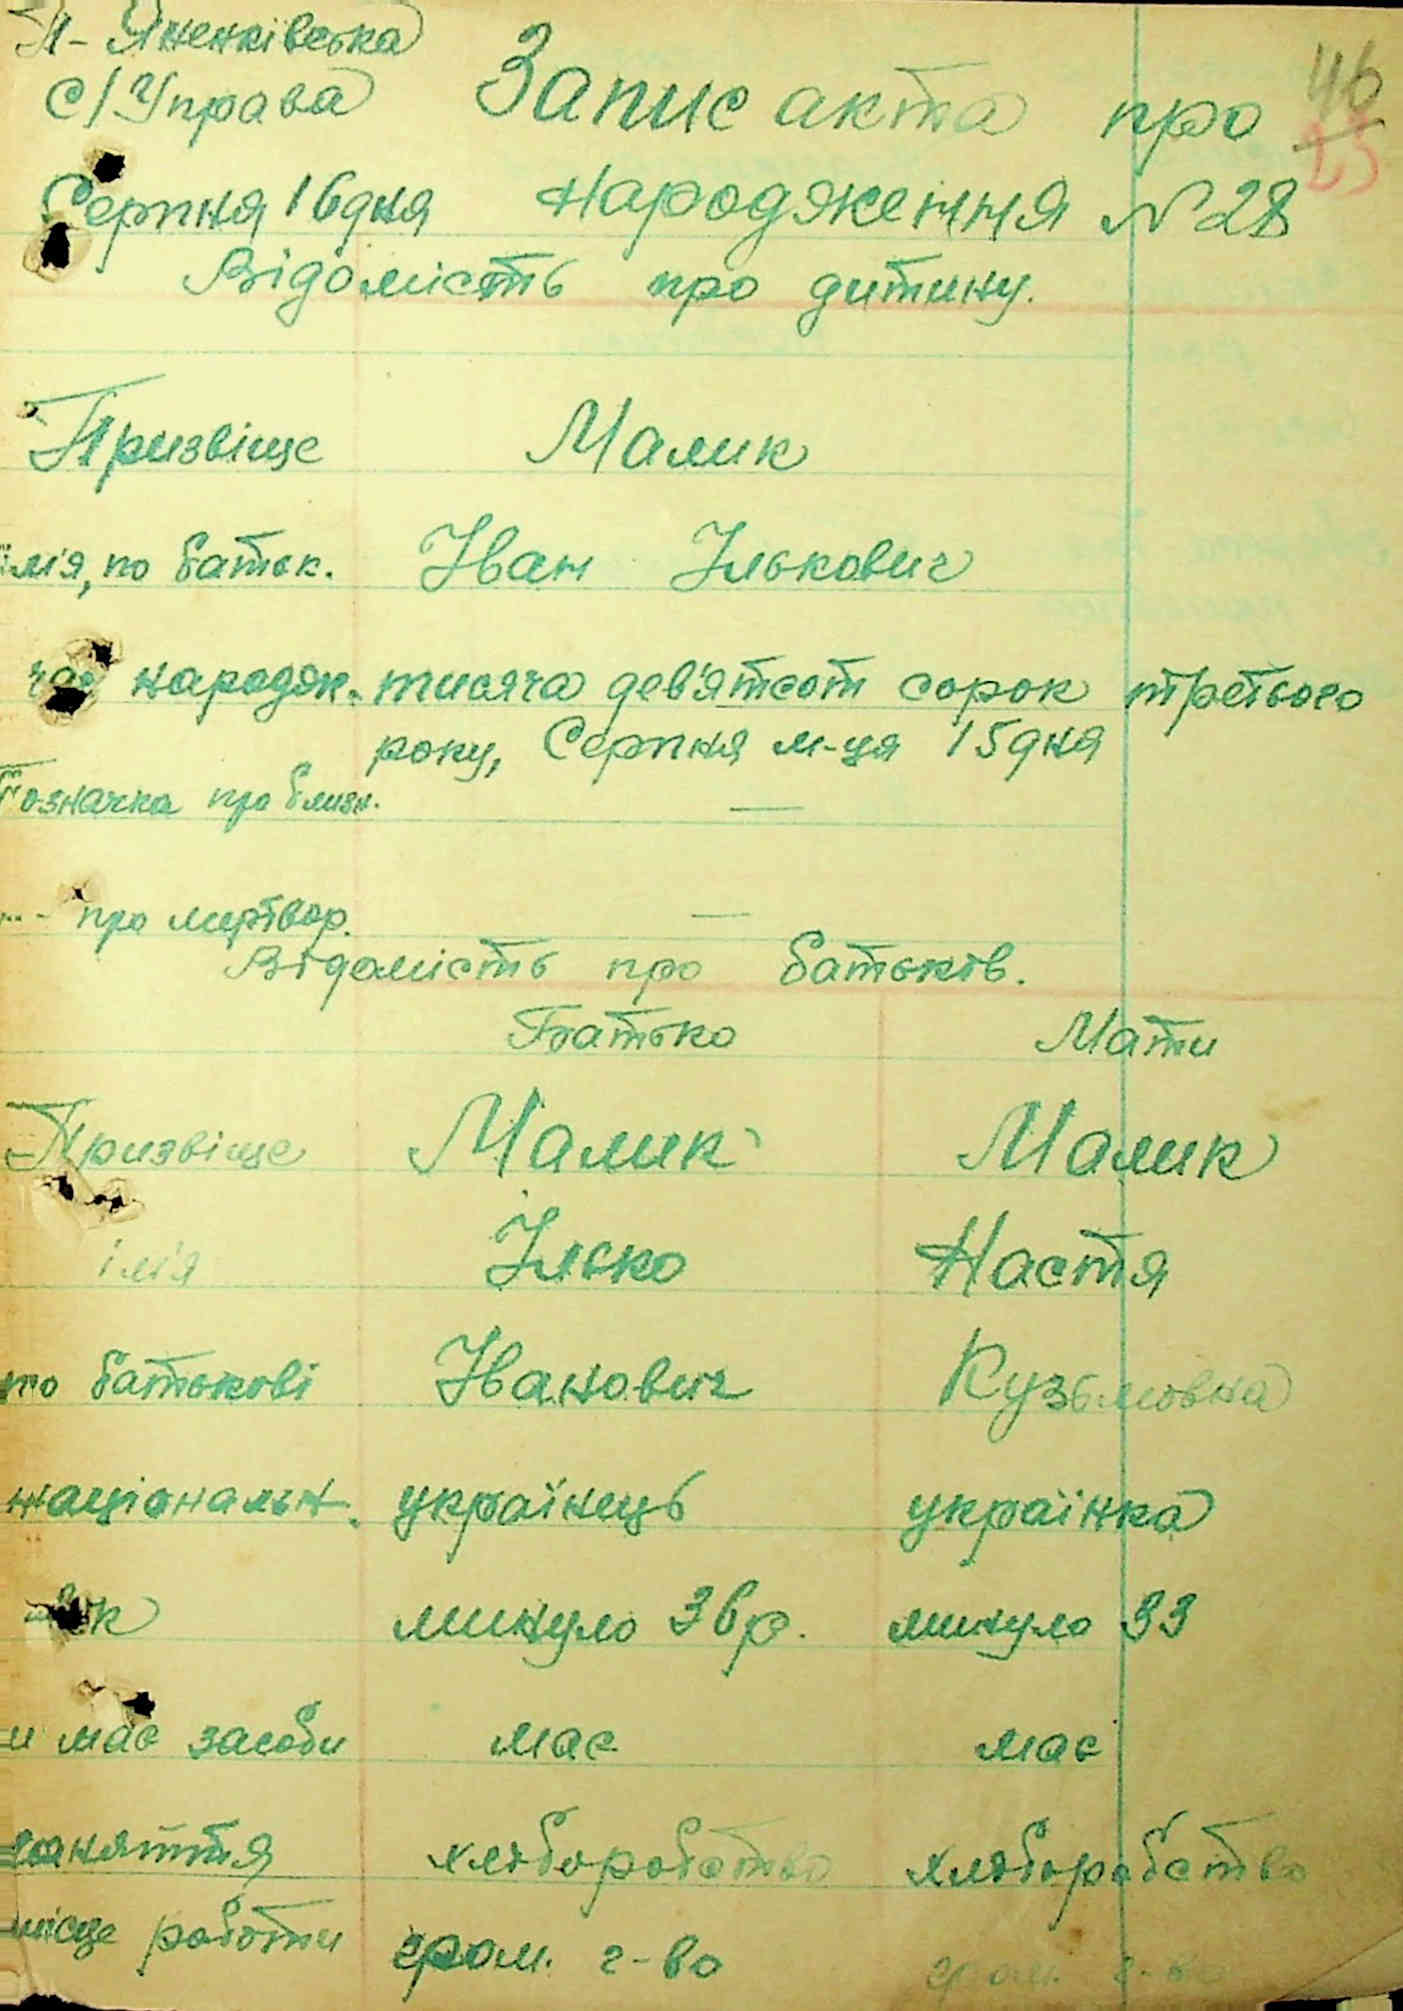 П-Яненківська
с/Управа Запис акта про 46
25
Серпня 16 дня народження N 28
Відомість про дитину.
Призвіще Малик
імя, по батьк. Іван Ількович
час народж. тисяча дев'ятсот сорок третього
року, Серпня м-ця 15 дня
Позначка про близн. —
—"— про мертвор. —
Відомість про батьків.
Батько Мати
Призвіще Малик Малик
ім'я Ілько Настя
по батькові Іванович Кузьмовна
національн. українець українка
вік минуло 36 р. минуло 33
чи має засоби має має
заняття хліборобство хліборобство
місце роботи гром. г-во гром. г-во